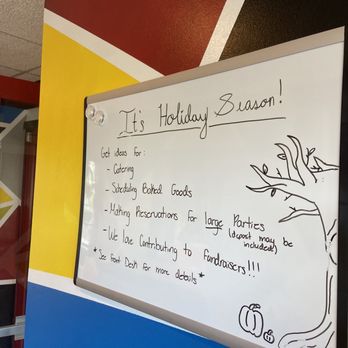 It's Holiday Season!
Get ideas for:
- Catering
- Scheduling Baked Goods
- Making Reservations for large Parties
(deposit may be
included!)
- We love Contributing to fundraisers!!!
*See Front Desk for more details*